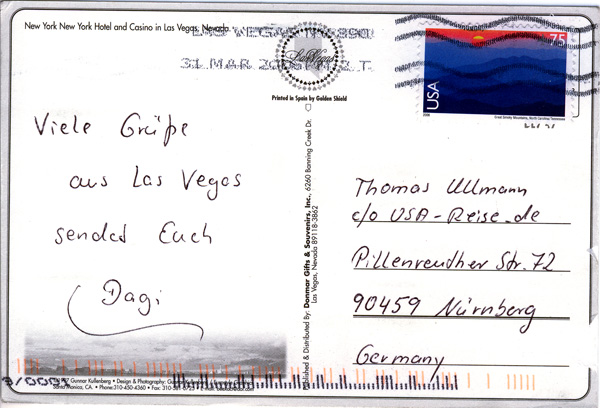 New York New York Hotel and Casino in Las Vegas, Nevada
31 MAR
Las Vegas
Printed in Spain by Golden Shield
75
USA
2006
Great Smoky Mountains, North Carolina-Tennessee
Viele Grüße
aus Las Vegas
sendet Euch
Dagi
Published & Distributed By: Donmar Gifts & Souvenirs, Inc. 6260 Banning Creek Dr.
Las Vegas, Nevada 89118-3862
Thomas Ullmann
c/o USA-Reise.de
Pillenreuther Str. 72
90459 Nürnberg
Germany
Gunnar Kullenberg • Design & Photography:
Santa Monica, CA. • Phone:310-450-4360 • Fax: